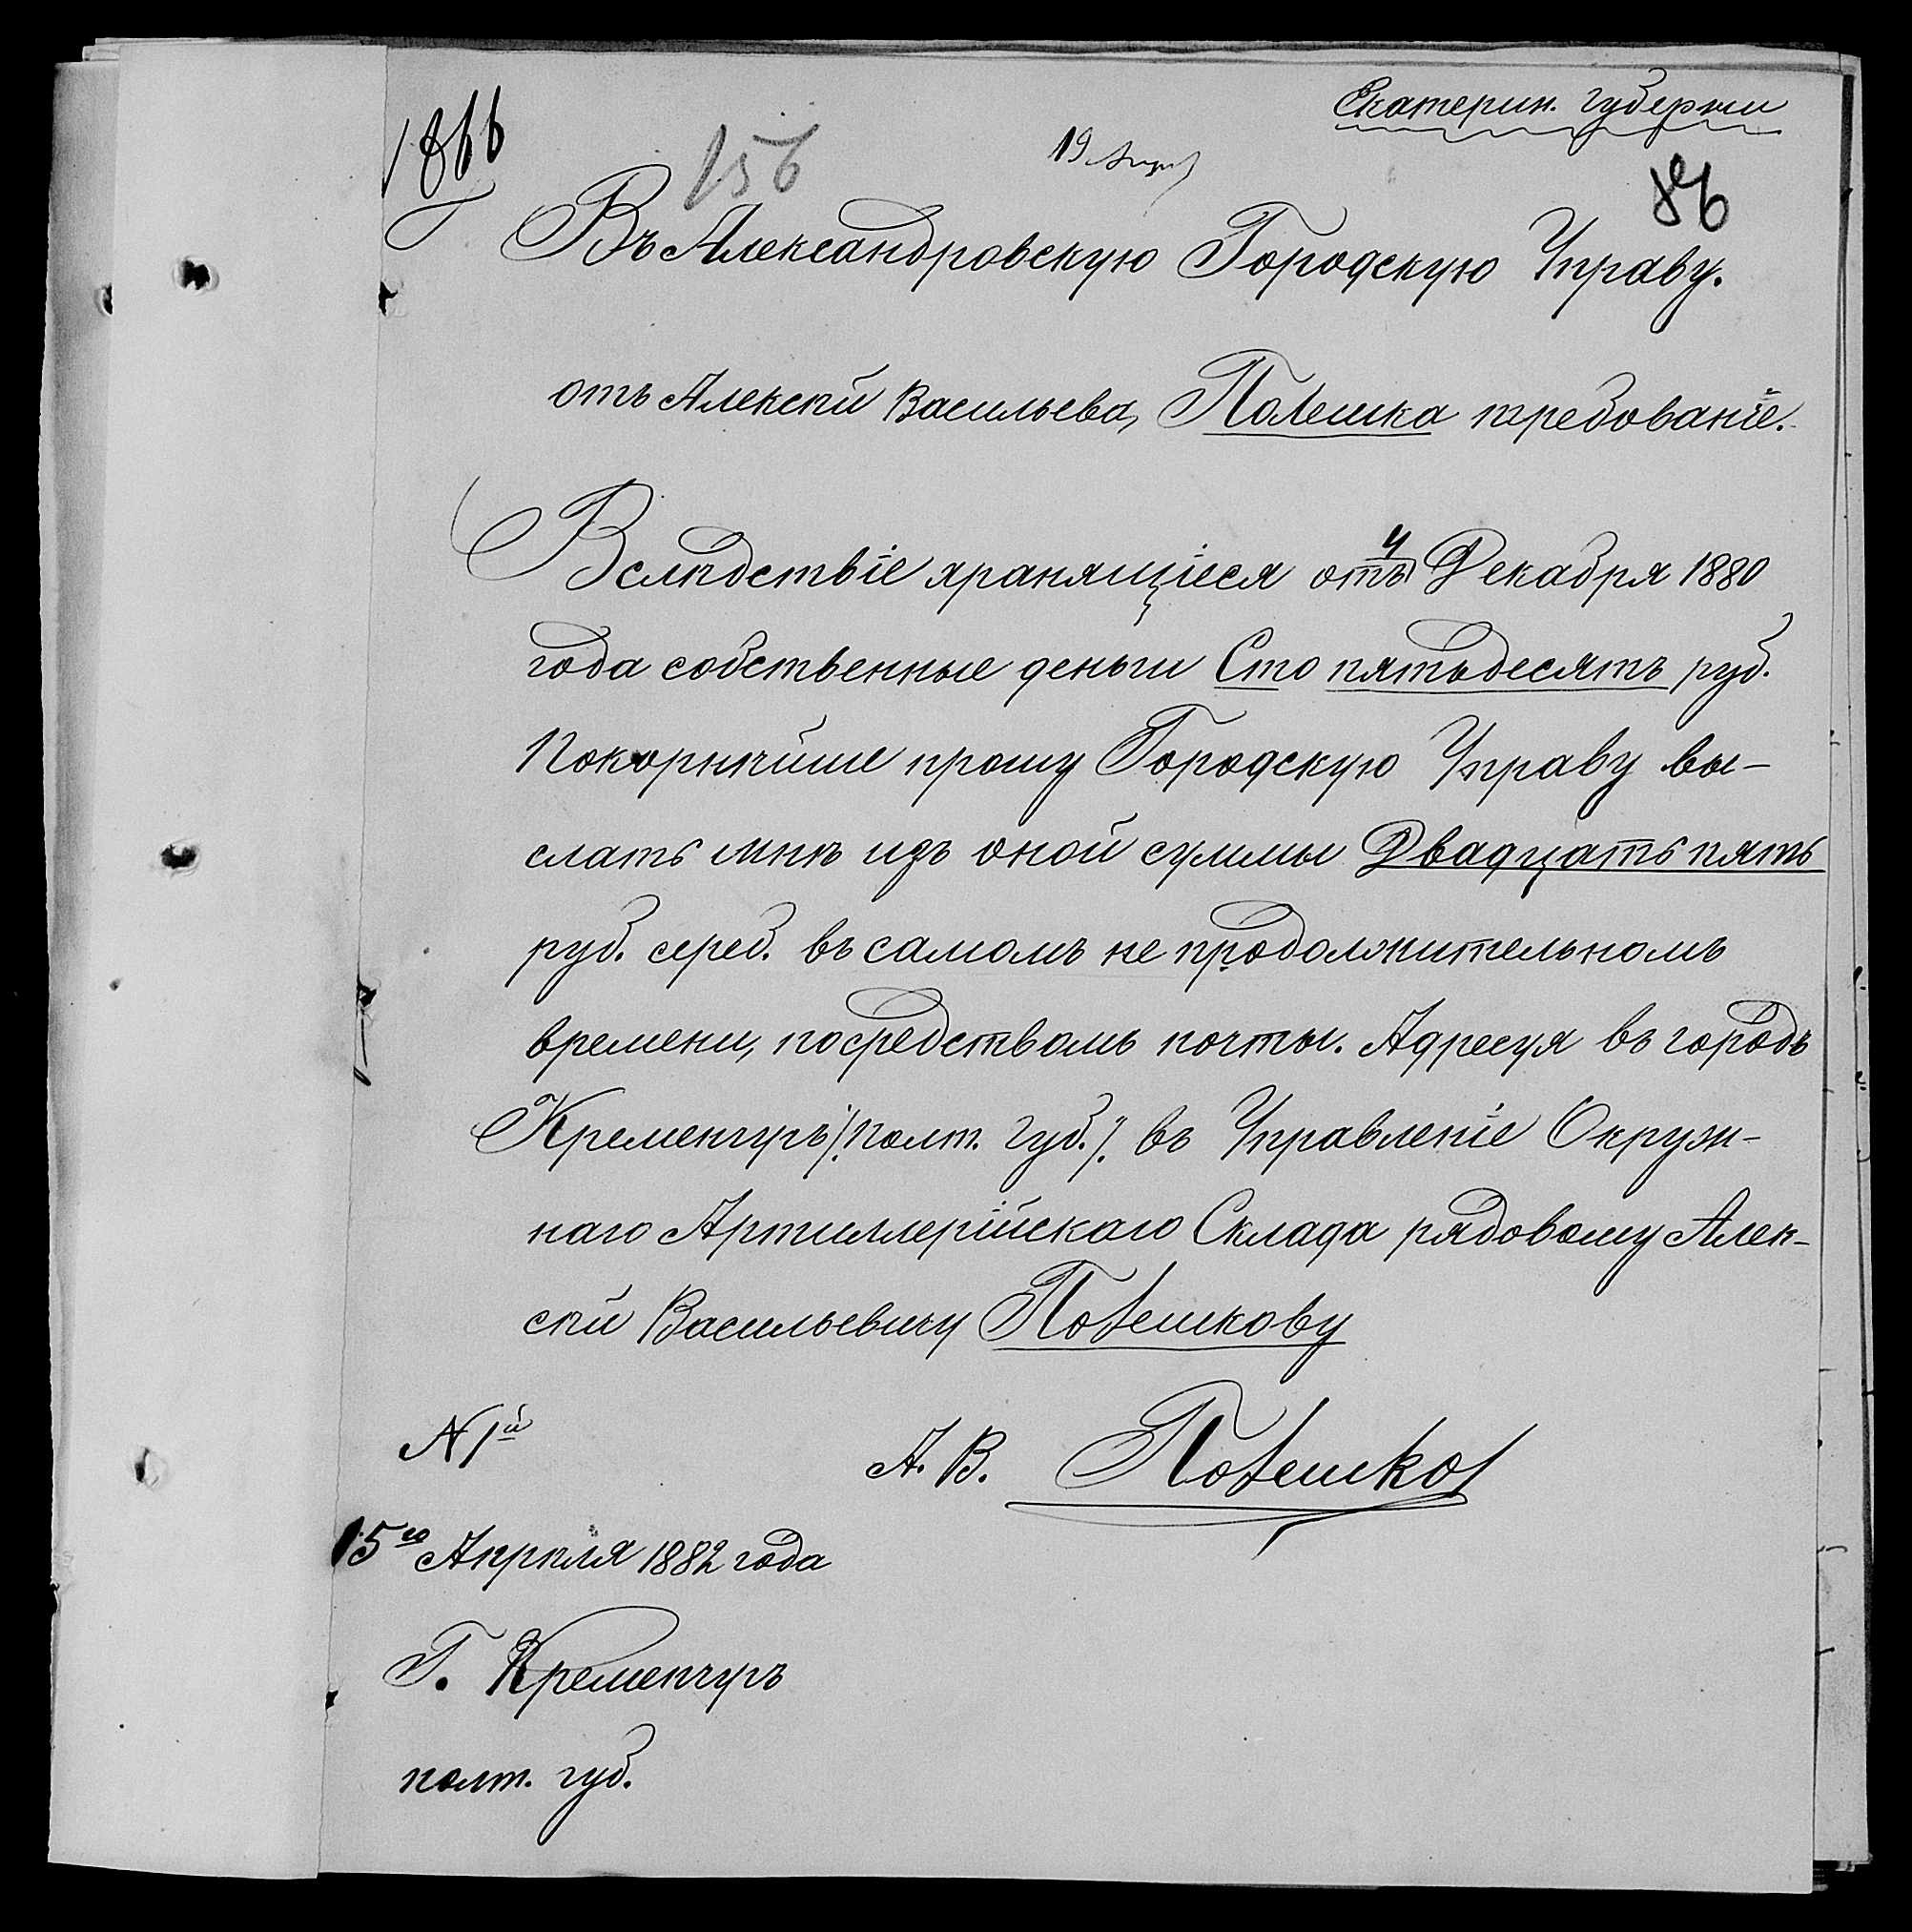 Екатерин. губернии
1866
156
19 Апр
86
Въ Александровскую Городскую Управу.
отъ Алексѣй Васильева, Полешка требованіе.
Вслѣдствіе хранящіеся отъ 4 Декабря 1880
года собственные деньги Сто пятьдесятъ руб.
Покорнѣйше прошу Городскую Управу вы-
слать мнѣ изъ оной суммы Двадцать пять
руб. сереб. въ самомъ не продолжительномъ
времени, посредствомъ почты. Адресуя въ городъ
Кременчугъ /: полт. губ. :/ въ Управленіе Окруж-
наго Артиллерійскаго Склада рядовому Алек-
сѣй Васильевичу Полешкову
N 1й
А. В. Полешков
15го Апрѣля 1882 года
Г. Кременчугъ
полт. губ.